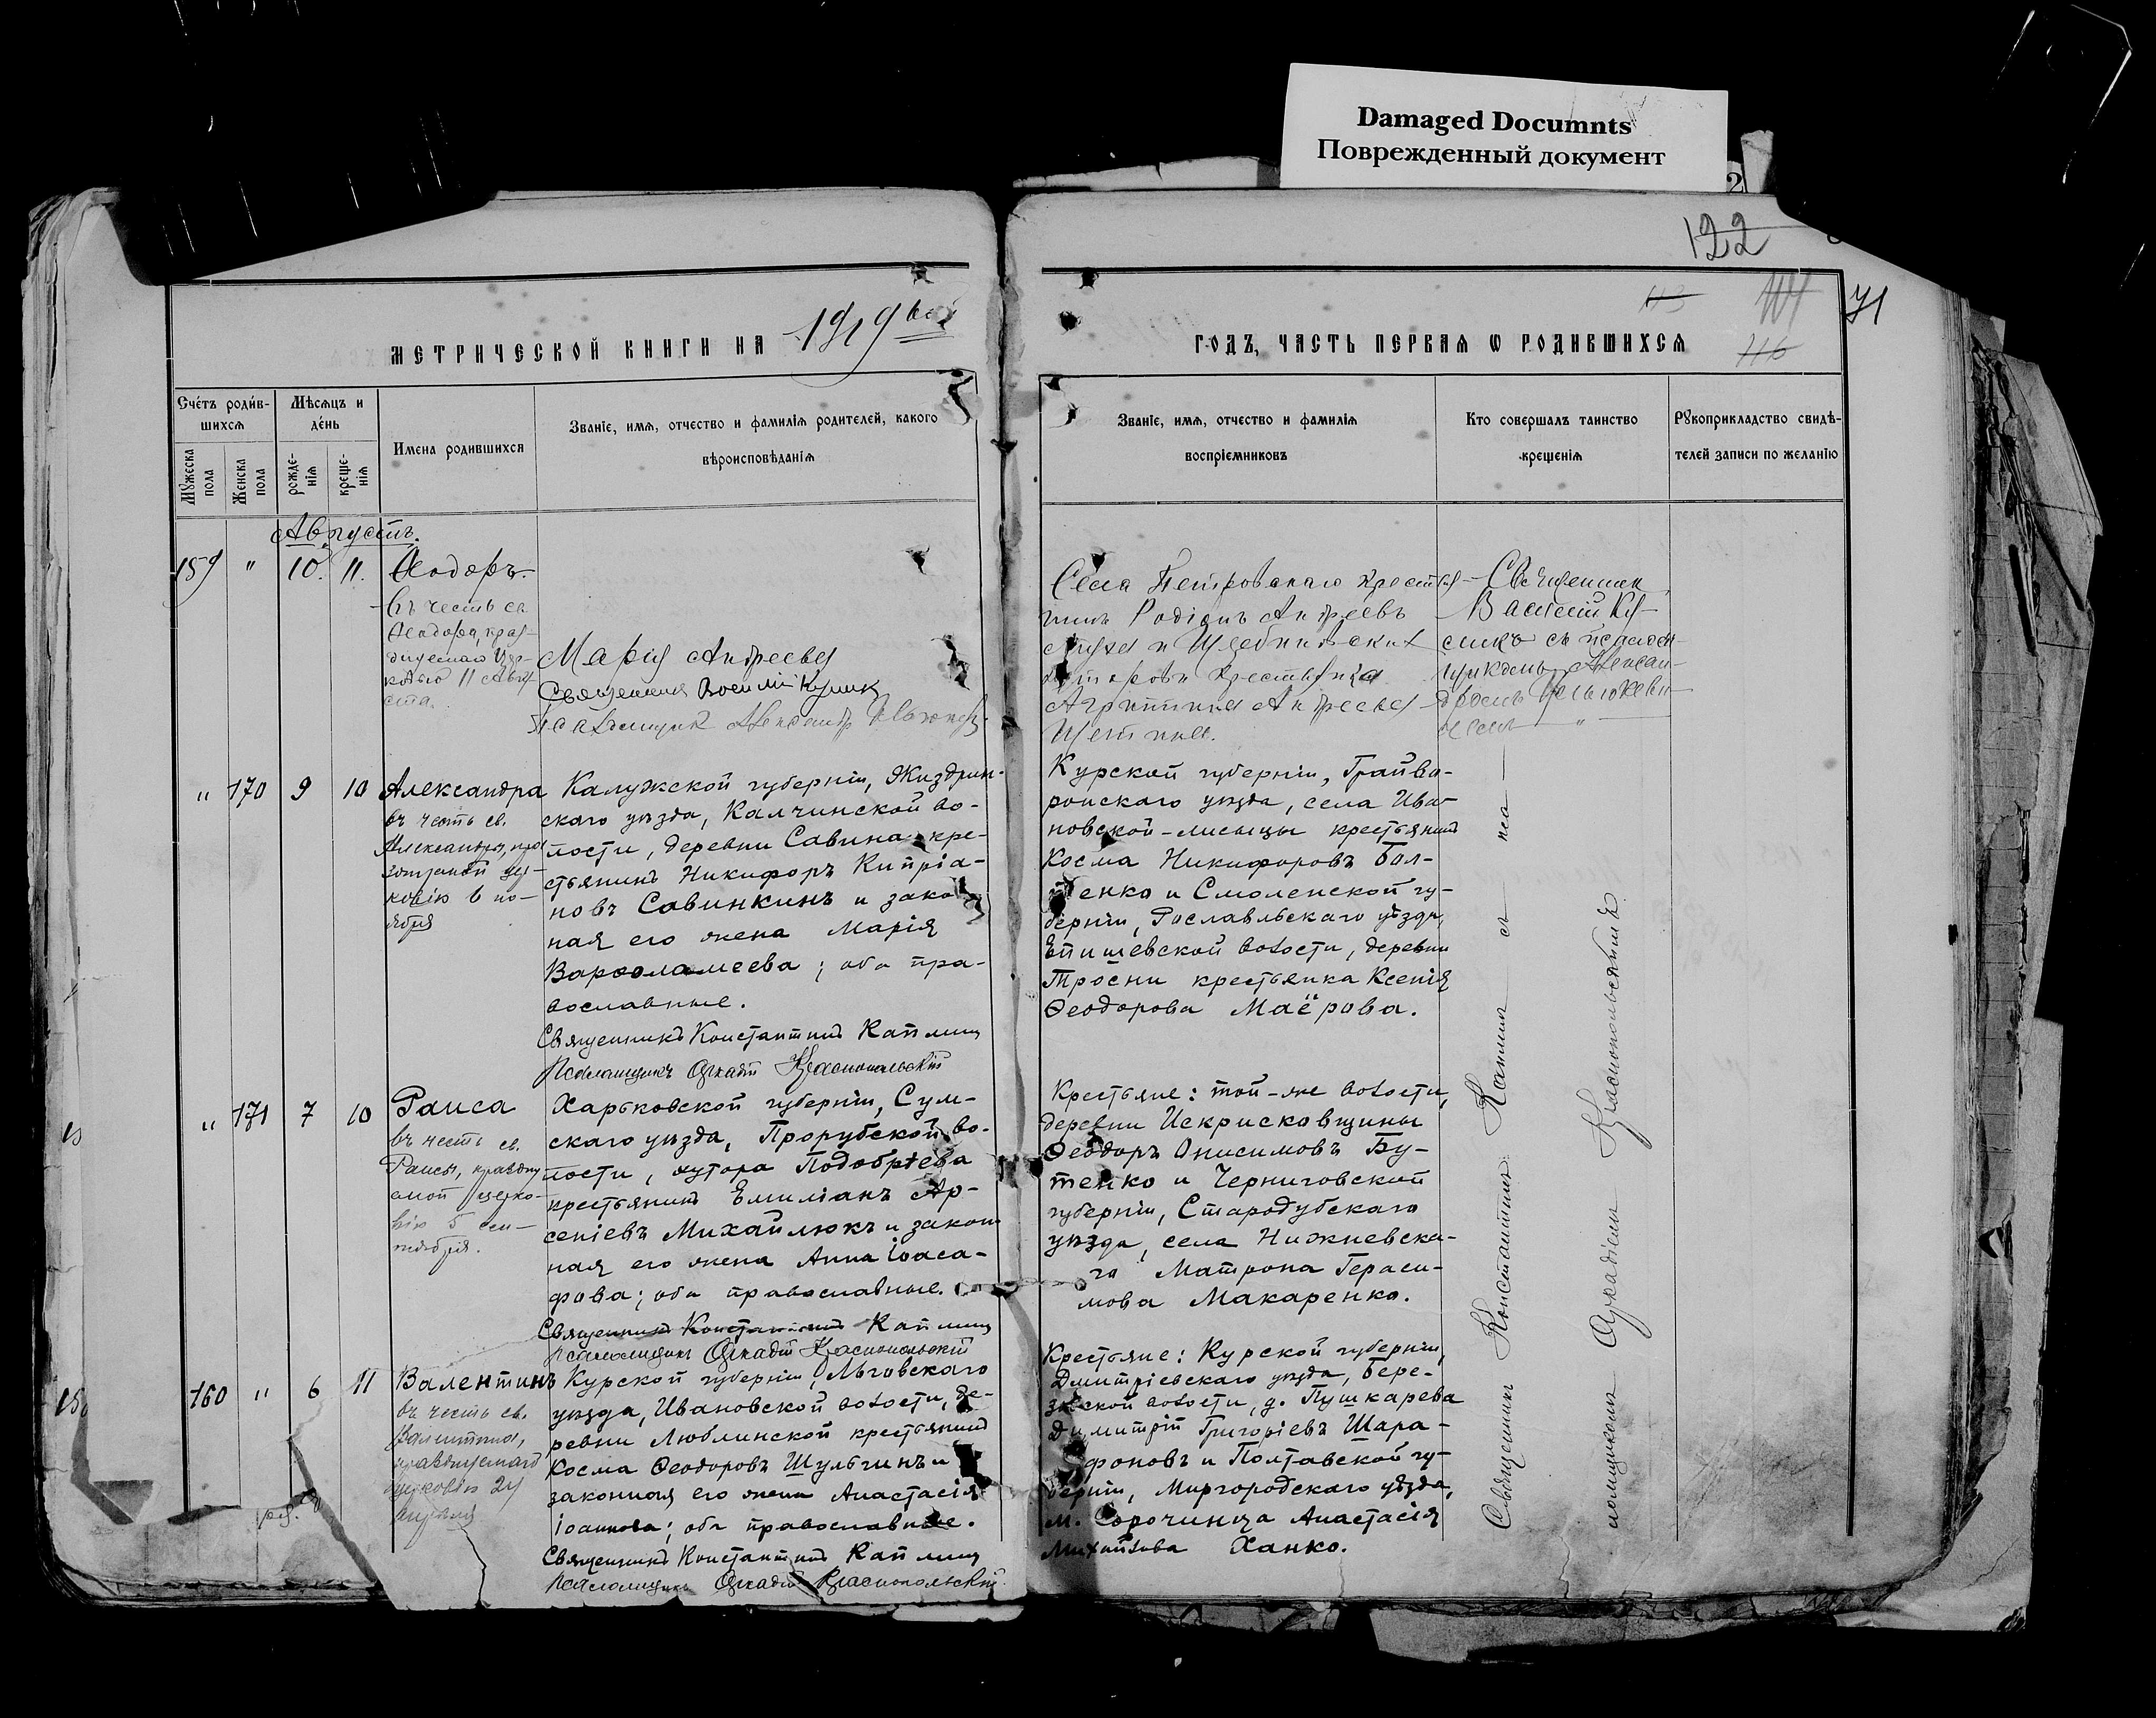 Damaged Documnts
Поврежденный документ
2
122
113
116
71
МЕТРИЧЕСКОЙ КНИГИ НА 1919 вый
ГОДЪ, ЧАСТЬ ПЕРВАЯ Ѡ РОДИВШИХСЯ
Сче́тъ роди́в-
шихся
Мѣсяцъ и
де́нь
Имена родившихся
Званіе, имя, отчество и фамилія родителей, какого
вѣроисповѣданія
Мꙋжеска
пола
Женска
пола
рожде-
нія
креще-
нія
Званіе, имя, отчество и фамилія
воспріемниковъ
Кто совершалъ таинство
крещенія
Рꙋкоприкладство свидѣ-
телей записи по желанію
Августъ.
159 " 10. 11. Ѳеодоръ.
въ честь св.
Ѳеодора, праз-
днуемаго цер-
ковью 11 Авгу-
ста.
Марія Андреева
Священникъ Василій Кулик
Псаломщик Александр
Села Петровскаго крестья-
нинъ Родіонъ Андреевъ
крестьянка
Агриппина Андреева
Щетинина.
Священник
Василій Ку-
ликъ съ псалом-
щикомъ Алексан-
дромъ
" 170 9 10 Александра
въ честь св.
Александры, пра
зднуемой цер-
ковію 6 но-
ября
Калужской губерніи, Жиздрин-
скаго уѣзда, Калчинской во-
лости, деревни Савина кре-
стьянинъ Никифоръ Кипріа-
новъ Савинкинъ и закон
ная его жена Марія
Варфоламеева; оба пра-
вославные.
Священникъ Константинъ Каплин
Псаломщикъ Аркадій Краснопольскій
Курской губерніи, Грайво-
ронскаго уѣзда, села Ива-
новской-лисицы крестьянинъ
Косма Никифоровъ Бон-
денко и Смоленской гу-
берніи, Рославльскаго уѣзда,
Епишевской волости, деревни
Тросни крестьянка Ксенія
Ѳеодорова Маёрова.
" 171 7 10 Раиса
въ честь св.
Раисы, праздну
емой церко-
вію 5 сен-
тября.
Харьковской губерніи, Сум-
скаго уѣзда, Прорубской во-
лости, хутора Подобрѣева
крестьянинъ Емиліанъ Ар-
сеніевъ Михайлюкъ и закон
ная его жена Анна Іоаса-
фова; оба православные.
Священникъ Константинъ Каплин
псаломщикъ Аркадій Краснопольскій
Крестьяне: той-же волости,
деревни Искрисковщины
Ѳеодоръ Онисимовъ Бу-
тенко и Черниговской
губерніи, Стародубскаго
уѣзда, села Нижневска-
го Матрона Гераси-
мова Макаренко.
160 " 6 11 Валентинъ
въ честь св.
Валентина,
празднуемаго
церковію 24
апрѣля
Курской губерніи, Льговскаго
уѣзда, Ивановской волости, де-
ревни Люблинской крестьянинъ
Косма Ѳеодоровъ Шульгинъ и
законная его жена Анастасія
Іоаннова; оба православные.
Священникъ Константинъ Каплин
псаломщикъ Аркадій Краснопольскій
Крестьяне: Курской губерніи,
Дмитріевскаго уѣзда, Бере-
зской волости, д. Пушкарева
Димитрій Григоріевъ Шара-
фоновъ и Полтавской гу-
берніи, Миргородскаго уѣзда,
м. Сорочинца Анастасія
Михайлова Ханко.
Священникъ Константинъ Каплин съ пса-
ломщикомъ Аркадіемъ Краснопольскимъ